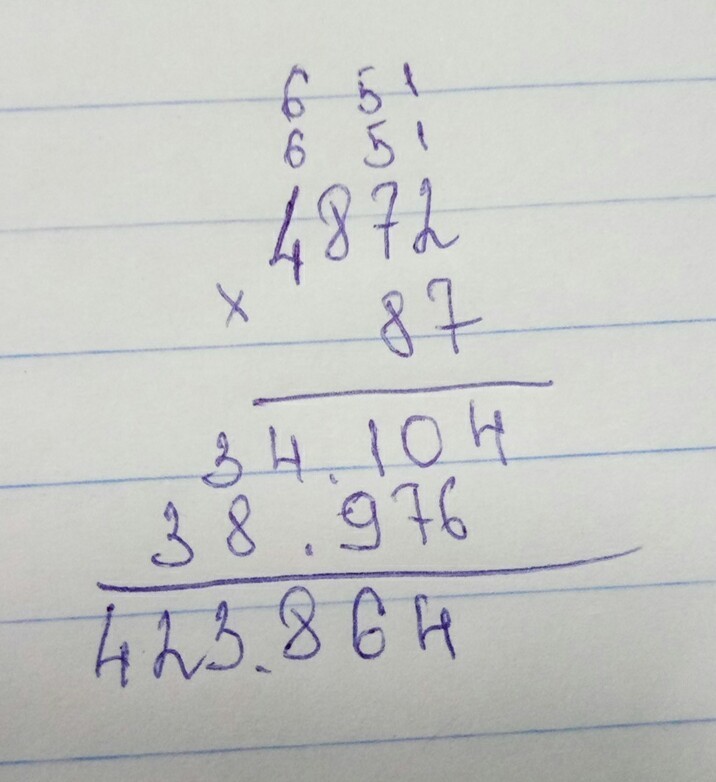 6 51
6 51
4872
× 87
34.104
38.976
423.864